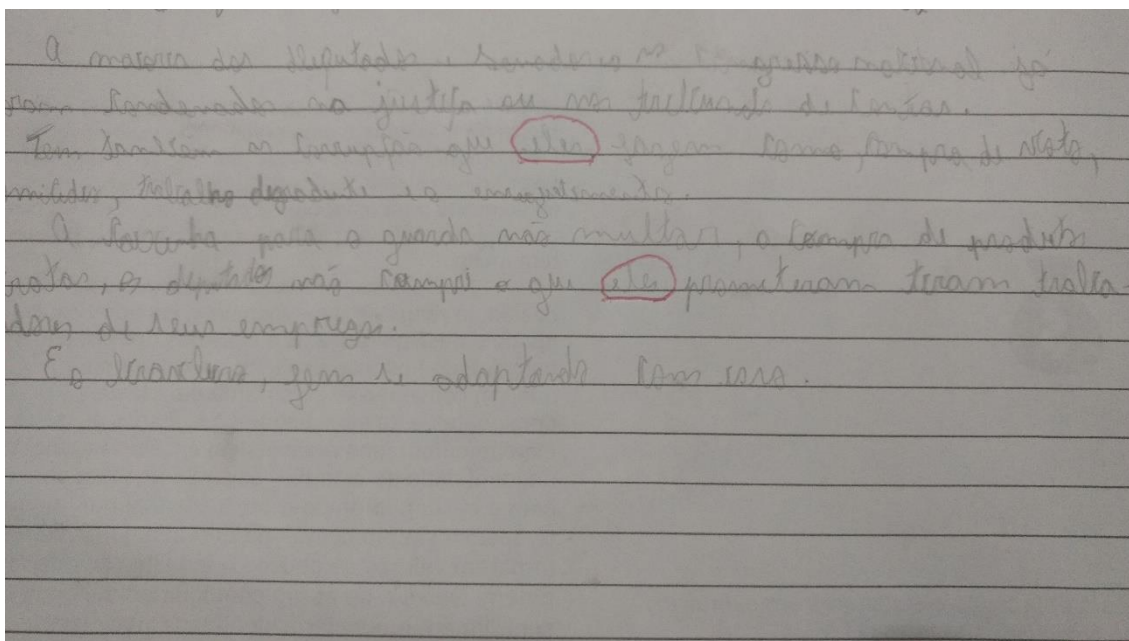 A maioria dos deputados e senadores no congresso nacional já
foram condenados na justiça ou nos tribunais de contas.
Tem também as corrupção que eles fazem como, compra de voto,
trabalho degradante e o
A para o guarda não multar, a compra de produtos
os deputados não compri o que eles prometeram tiram traba-
dores de seus empregos.
E o se adaptando com isso.